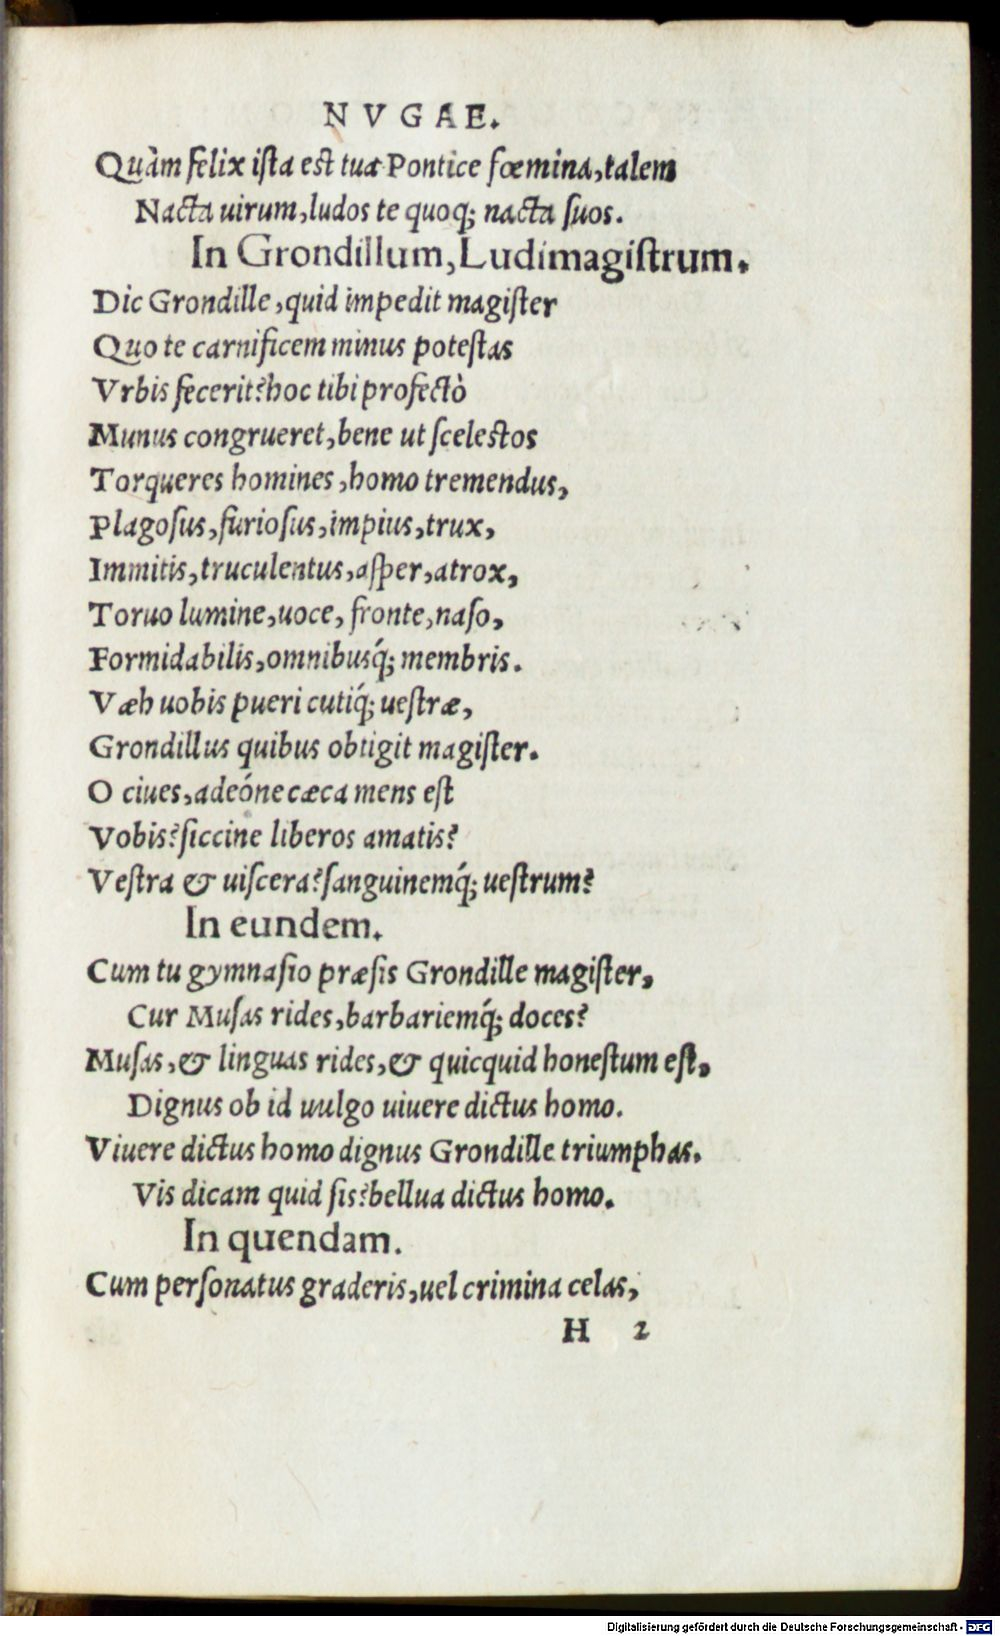 NVGAE.
Quàm felix ista est tua Pontice fœmina, talem
Nacta uirum, ludos te quoq; nacta suos.
In Grondillum, Ludimagistrum.
Dic Grondille, quid impedit magister
Quo te carnificem minus potestas
Vrbis fecerit? hoc tibi profectò
Munus congrueret, bene ut scelestos
Torqueres homines, homo tremendus,
Plagosus, furiosus, impius, trux,
Immitis, truculentus, asper, atrox,
Toruo lumine, uoce, fronte, naso,
Formidabilis, omnibusq́; membris.
Væh uobis pueri cutiq́; uestræ,
Grondillus quibus obtigit magister.
O ciues, adeóne cæca mens est
Vobis? siccine liberos amatis?
Vestra & uiscera? sanguinemq́; uestrum?
In eundem.
Cum tu gymnasio præsis Grondille magister,
Cur Musas rides, barbariemq́; doces?
Musas, & linguas rides, & quicquid honestum est,
Dignus ob id uulgo uiuere dictus homo.
Viuere dictus homo dignus Grondille triumphas.
Vis dicam quid sis? bellua dictus homo.
In quendam.
Cum personatus graderis, uel crimina celas,
H 2
Digitalisierung gefördert durch die Deutsche Forschungsgemeinschaft - DFG